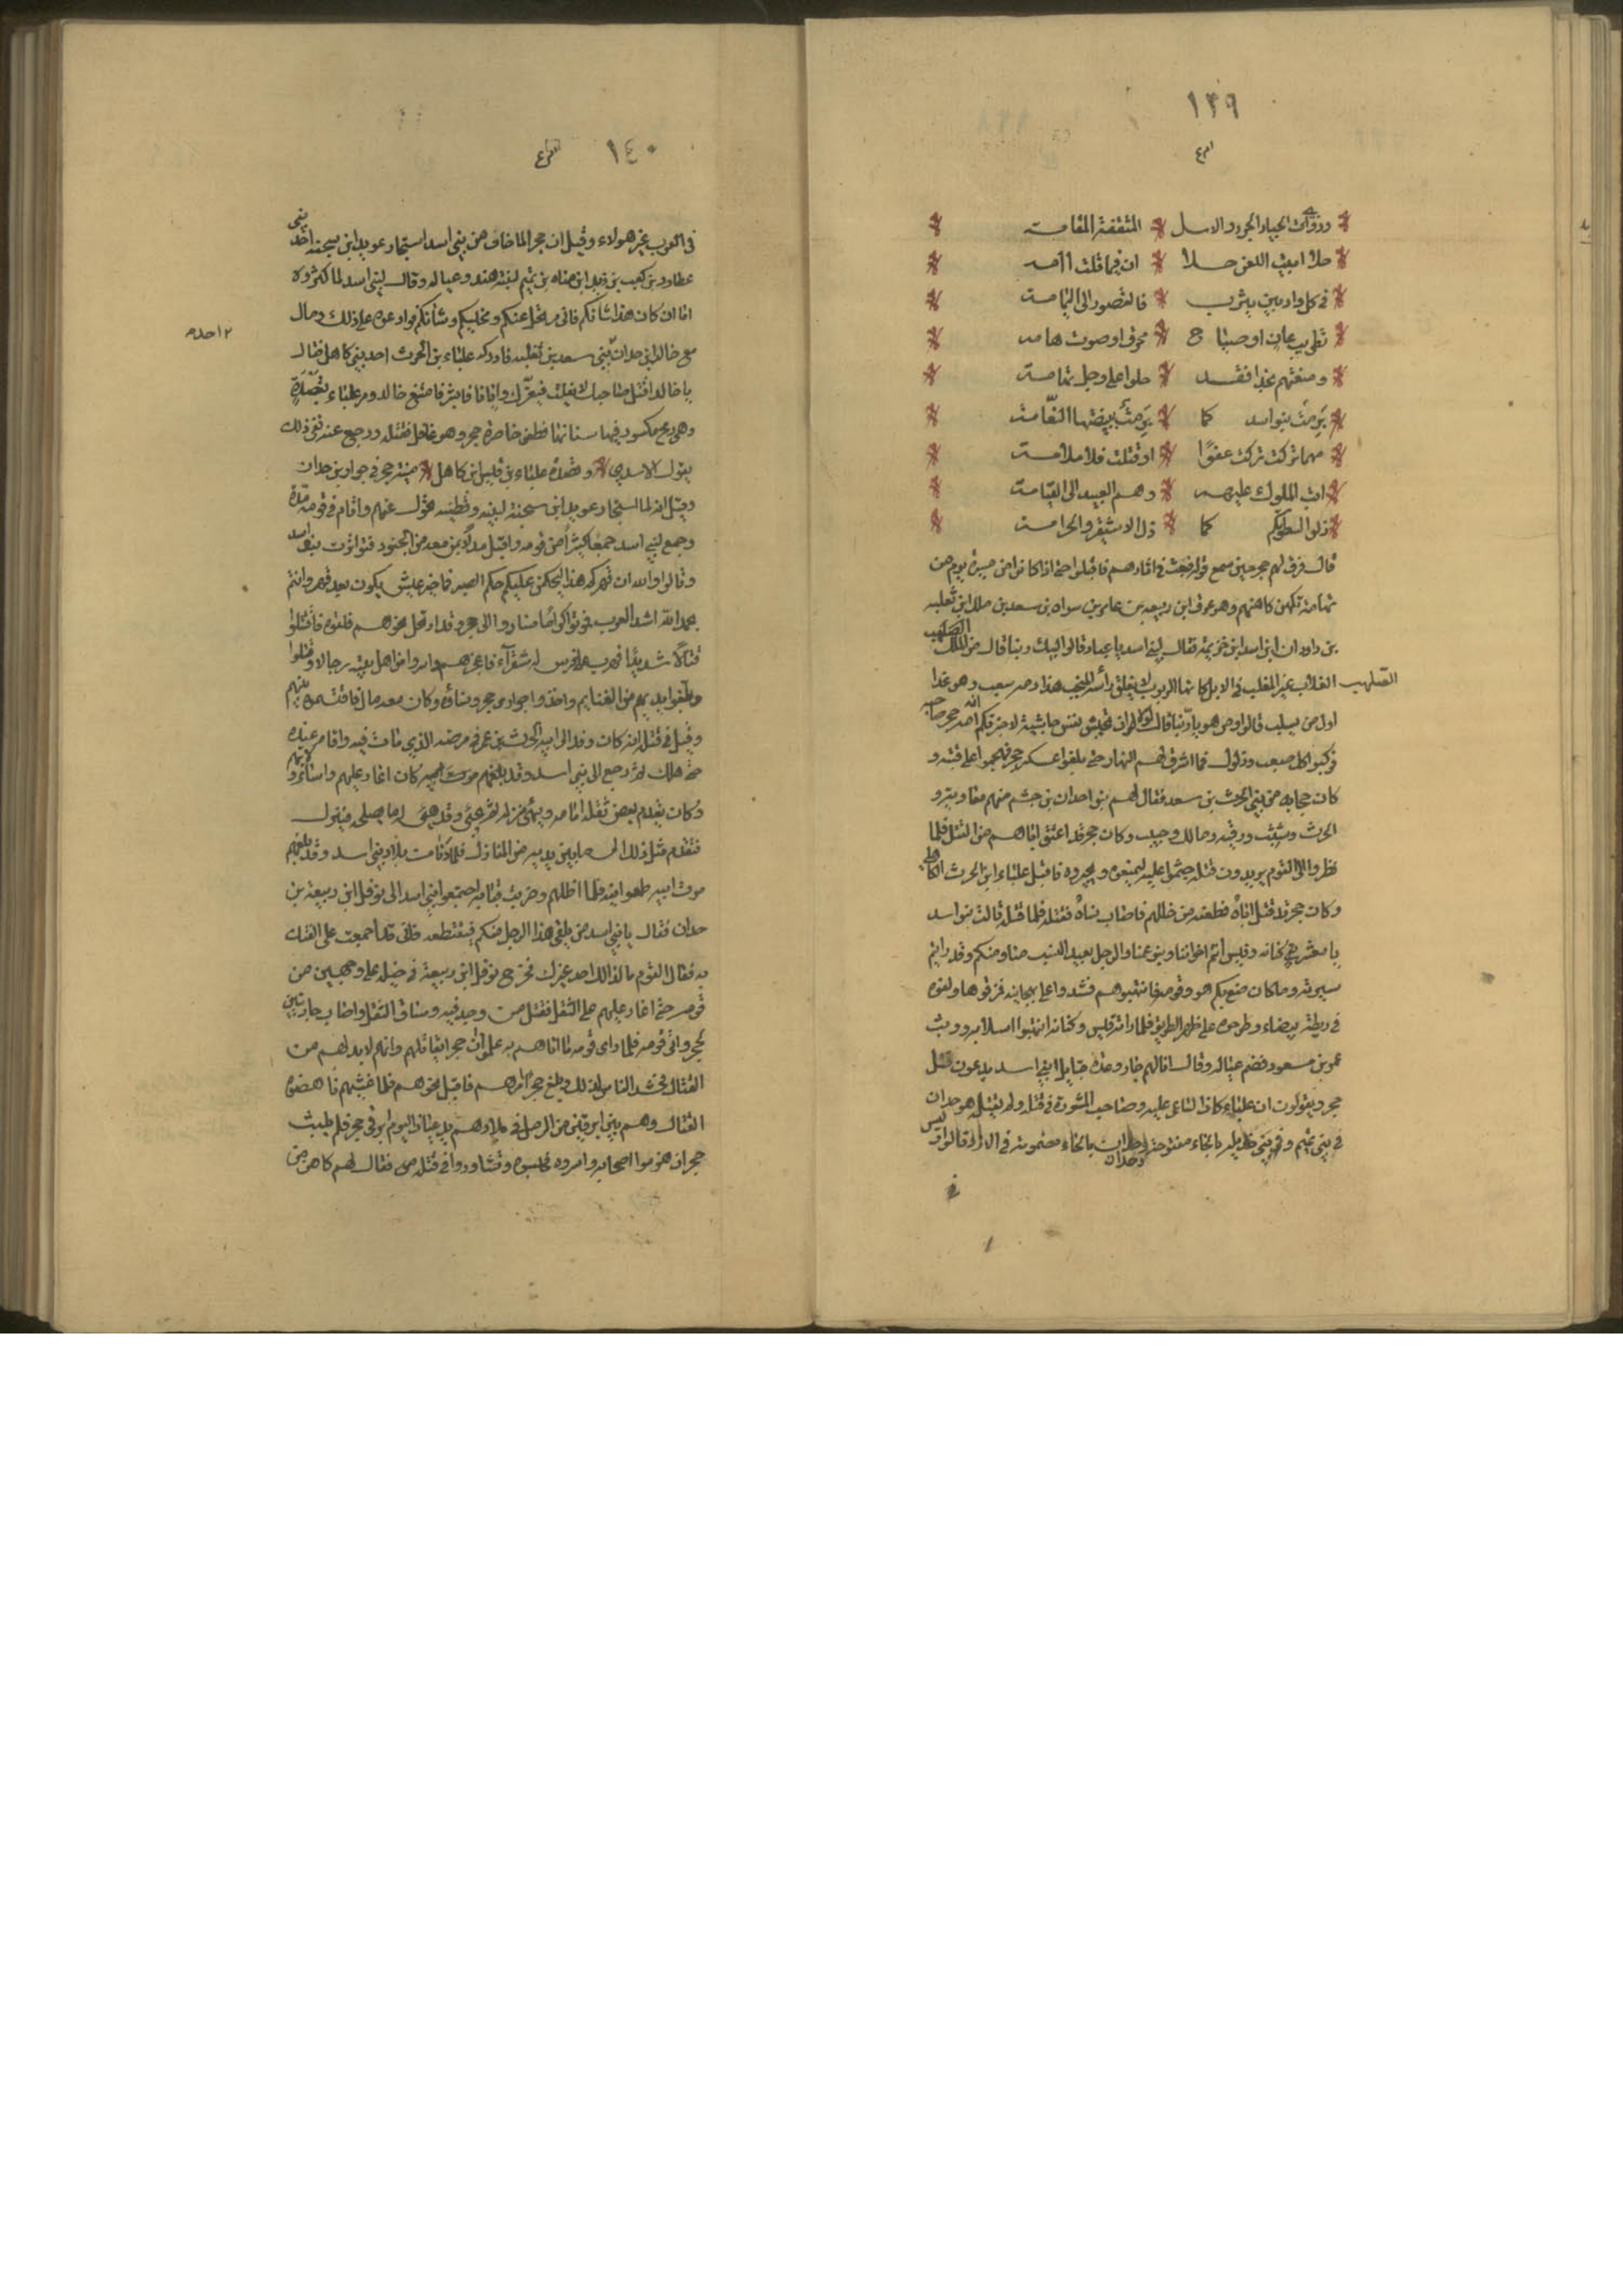 ١٣٩
وذوات الجياد الجرد والاسل * المثقفة المقامة
حلا ابيت اللعن حلا * ان فيما قلت آمه
في كل واد بين يثرب * فالقصور الى اليمامة
تطريب عان او صيا ح * محرق او صوت هامه
ومنعتهم نجدا فقد * حلوا على وجل تهامة
برمت بنو اسد كما * برمت ببيضتها النعامة
مهما تركت تركت عفوا * او قتلت فلا ملامة
انت المليك عليهم * وهم العبيد الى القيامة
ذلوا لسوطكم كما * ذل الاشيقر والخزامة
قال فرق لهم حجر حين سمع قوله فبعث في اثارهم فاقبلوا حتى اذا كانوا من مسيرة يوم من
تهامة تكهن كاهنهم وهو عوف ابن ربيعه بن عامر بن سواه بن سعد بن مالك ابن ثعلبه
بن دودان ابن اسد ابن خزيمة فقال لبني اسد يا عبادي قالوا لبيك ربنا قال من الملك الصلهب
الصلهب
الغلاب غير المغلب في الابل كانها الربرب لا يعلق رأسه الصخب هذا دمه سعب وهو غدا
اول من يسلب قالوا من هو يا ربنا قال لولا ان تجيش نفس جاشية لاخبرتكم انه حجر ضاحيه
فركبوا كل صعب وذلول فما اشرق لهم النهار حتى بلغوا عسكر حجر فهجموا على قبته و
كان حجابه من بني الحرث بن سعد فقال لهم بنو احدان بن جشم منهم معاوية و
الحرث وشبيب ورقيه ومالك وحبيب وكان حجر قد اعتق اباهم من القتل فلما
نظروا الى القوم يريدون قتله جثموا عليه ليمنعوه ويجيروه فاقبل علباء ابن الحرث الكاهلي
وكان حجر قد قتل اباه فطعنه من خللهم فاصاب نساه فقتله فلما قتله قالت بنو اسد
يا معشر بني كنانه وقيس انتم اخواننا وبنو عمنا والرجل بعيد النسب منا ومنكم وقد رايتم
سيرته وما كان صنع بكم هو وقومه فانتهبوهم فشدوا على هجاينه فمزقوها ولفوه
في ريطة بيضاء وطرحوه على ظهر الطريق فلما راته قيس وكنانه انتهبوا اسلابه ووثب
عمرو بن مسعود فضم عياله وقال انا لهم جار وعدة قبايل بني اسد يدعون قتل
حجر ويقولون ان علباء كان الساعي عليه وصاحب المشورة في قتله ولم يقتله هو حدان
في بني تميم وفي بني خديله بالخاء مفتوحة وخدان بالخاء مضمومة في الازد قالوا وليس
١٤٠
في العرب غير هولاء وقيل ان حجرا لما خاف من بني اسد استجار عويد ابن سجنه احد بني
عطارد بن كعب بن زيد ابن مناه بن تميم لبنته هند وعياله وقال لبني اسد لما كثروه
اما ان كان هذا شانكم فاني مرتحل عنكم ومخليكم وشانكم فوادعوه على ذلك ومال
٢ احده
مع خالد ابن حدان بني سعد بن ثعلبه فادركه علباء بن الحرث احد بني كاهل فقال
يا خالد اقتل صاحبك لا يفلت فيعرك وايانا فايشر فامتنع خالد ومر علباء بقصدة
وهي رمح مكسور فيها سنانها فطعن خاصرة حجر وهو غافل فقتله ورجع عنه ففي ذلك
يقول الاسدي * وقصدة علباء بن قيس ابن كاهل * منية حجر في جوار بن حدان
وقيل انه لما استجار عويد ابن سجنة لبنيه وقطينه تحول عنهم واقام في قومه مدة
وجمع لبني اسد جمعا كثيرا من قومه واقبل مدلا بمن معه من الجنود فتوامرت بنو اسد
وقالوا والله ان قهركم هذا ليحكمن عليكم حكم الصبي فما خير عيش يكون بعد قهر وانتم
بحمد الله اشد العرب فموتوا كراما فساروا الى حجر وقد ارتحل نحوهم فلقوه فاقتتلوا
قتالا شديدا
وقيل في قتله انه كان وفد الى ابيه الحرث بن عمرو في مرضه الذي مات فيه واقام عنده
حتى هلك ثم رجع الى بني اسد وقد بلغهم موت ابيه كان اغار عليهم واساء ولايتهم
وكان يقدم بعض ثقله امامه ويهيئ نزله ثم يجئ وقد هيئ له ما يصلحه فينزل
فتقدم مثل ذلك الى ما بين يديه من المنازل فلما دنا من بلاد بني اسد وقد بلغهم
موت ابيه طمعوا فيه فلما اظلهم وضربت قبابه اجتمعوا بني اسد الى نوفل ابن ربيعة بن
حدان فقال يا بني اسد من يلقى هذا الرجل منكم فيقتطعه فاني قد اجمعت على الفتك
به فقال القوم ما لذالك احد غيرك فخرج نوفل ابن ربيعة في خيله على وجهين من
قومه حتى اغار عليهم على الثقل فقتل من وجد فيه وساق الثقل واصاب جاريتين
لحجر واتى قومه فلما راى قومه ما اتاهم به علموا ان حجرا يقاتلهم وانهم لا بد لهم من
القتال فحشد الناس لذلك وبلغ حجر امرهم فاقبل نحوهم فلما غشيهم ناهضوه
القتال وهم بين ابرقين من الرمل في بلادهم يدعيان اليوم ابرقي حجر فلم يلبث
حجر ان هزموا اصحابه واسروه فحبسوه وتشاوروا في قتله فقال لهم كاهن من